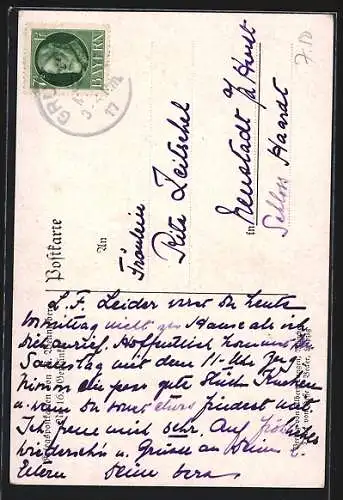 7½
BAYERN
GRÜ
17
7.50
Postkarte
An
Fräulein
Rita Zeitschel
in Neustadt a/d Hardt
Schloss Haardt
L. F. Leider warst Du heute
Vormittag nicht zu Hause als ich
Dich anrief. Hoffentlich kommst Du
Samstag mit dem 11-Uhr Zug
Nimm ein paar gute Stück Kuchen
u. wenn Du sonst etwas findest mit
Ich freue mich sehr. Auf fröhliches
Wiedersehn u. Grüsse an Deine l.
Eltern Deine Vera